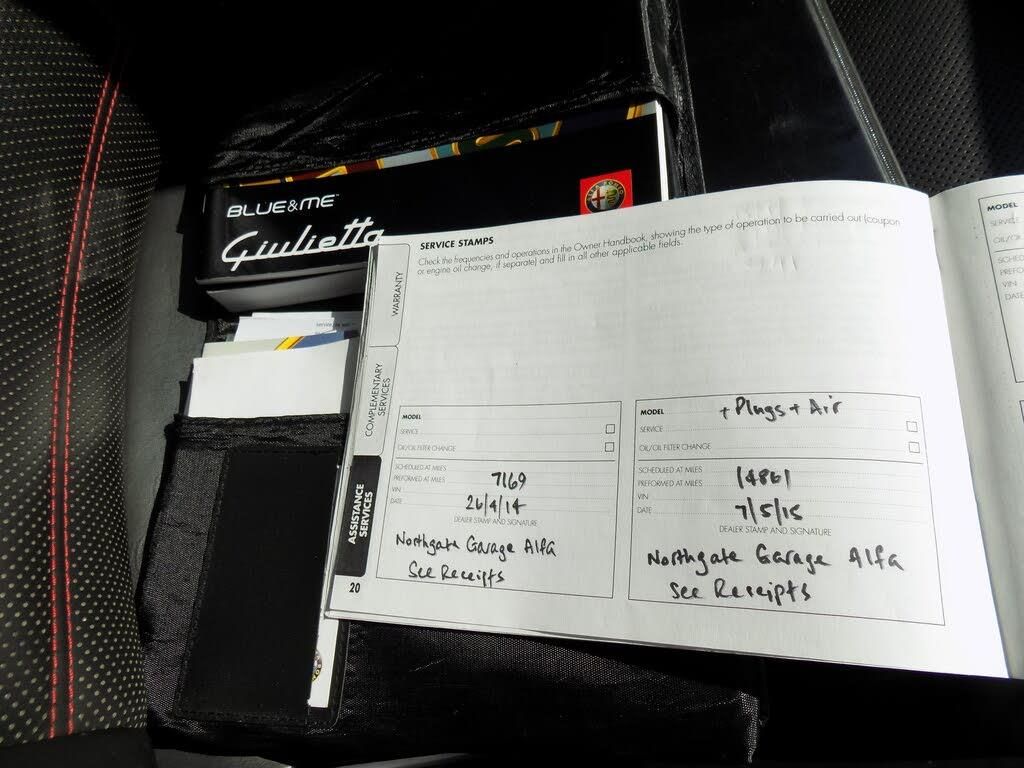 BLUE&ME™
Giulietta
WARRANTY
COMPLEMENTARY
SERVICES
ASSISTANCE
SERVICES
SERVICE STAMPS
Check the frequencies and operations in the Owner Handbook, showing the type of operation to be carried out (coupon
or engine oil change, if separate) and fill in all other applicable fields.
MODEL
SERVICE
OIL/OIL FILTER CHANGE
SCHEDULED AT MILES
PREFORMED AT MILES 7169
VIN
DATE 26/4/14
DEALER STAMP AND SIGNATURE
Northgate Garage Alfa
See Receipts
20
MODEL + Plugs + Air
SERVICE
OIL/OIL FILTER CHANGE
SCHEDULED AT MILES
PREFORMED AT MILES 14861
VIN
DATE 7/5/15
DEALER STAMP AND SIGNATURE
Northgate Garage Alfa
See Receipts
MODEL
SERVICE
VIN
DATE